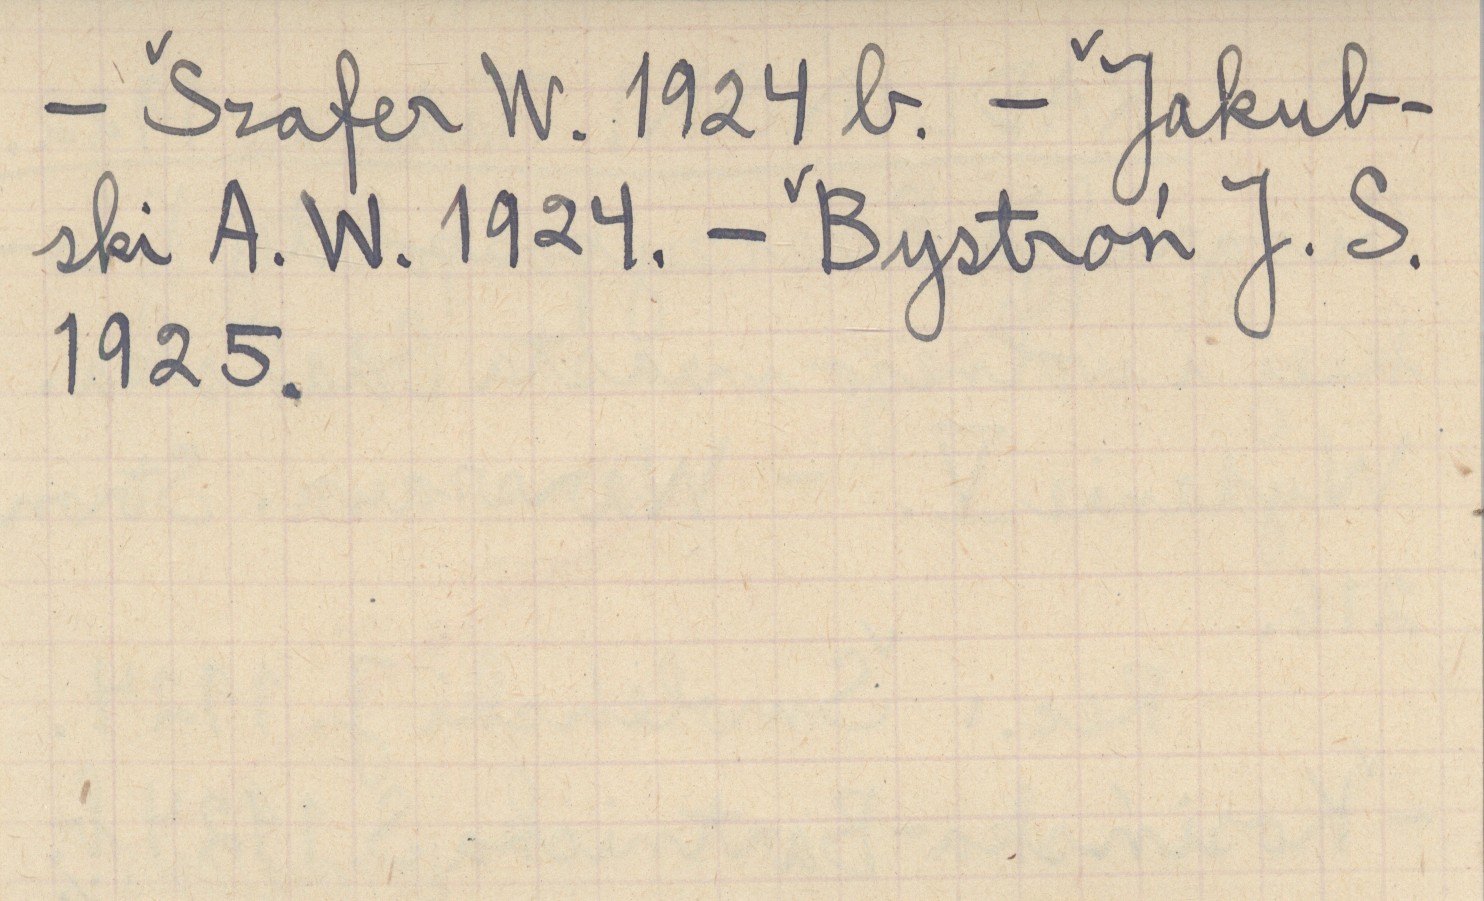 – ˇSzafer W. 1924 b. – ˇJakub-
ski A. W. 1924. – ˇBystroń J. S.
1925.